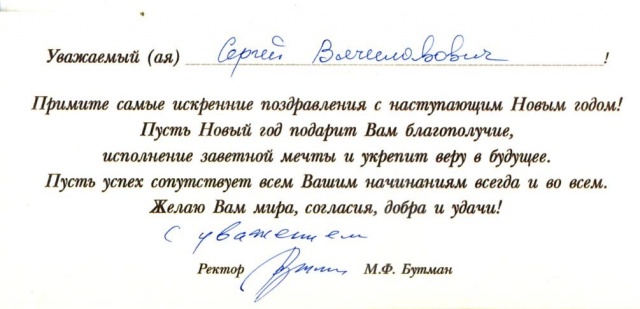 Уважаемый (ая) Сергей Вячеславович !
Примите самые искренние поздравления с наступающим Новым годом!
Пусть Новый год подарит Вам благополучие,
исполнение заветной мечты и укрепит веру в будущее.
Пусть успех сопутствует всем Вашим начинаниям всегда и во всем.
Желаю Вам мира, согласия, добра и удачи!
С уважением
Ректор М.Ф. Бутман